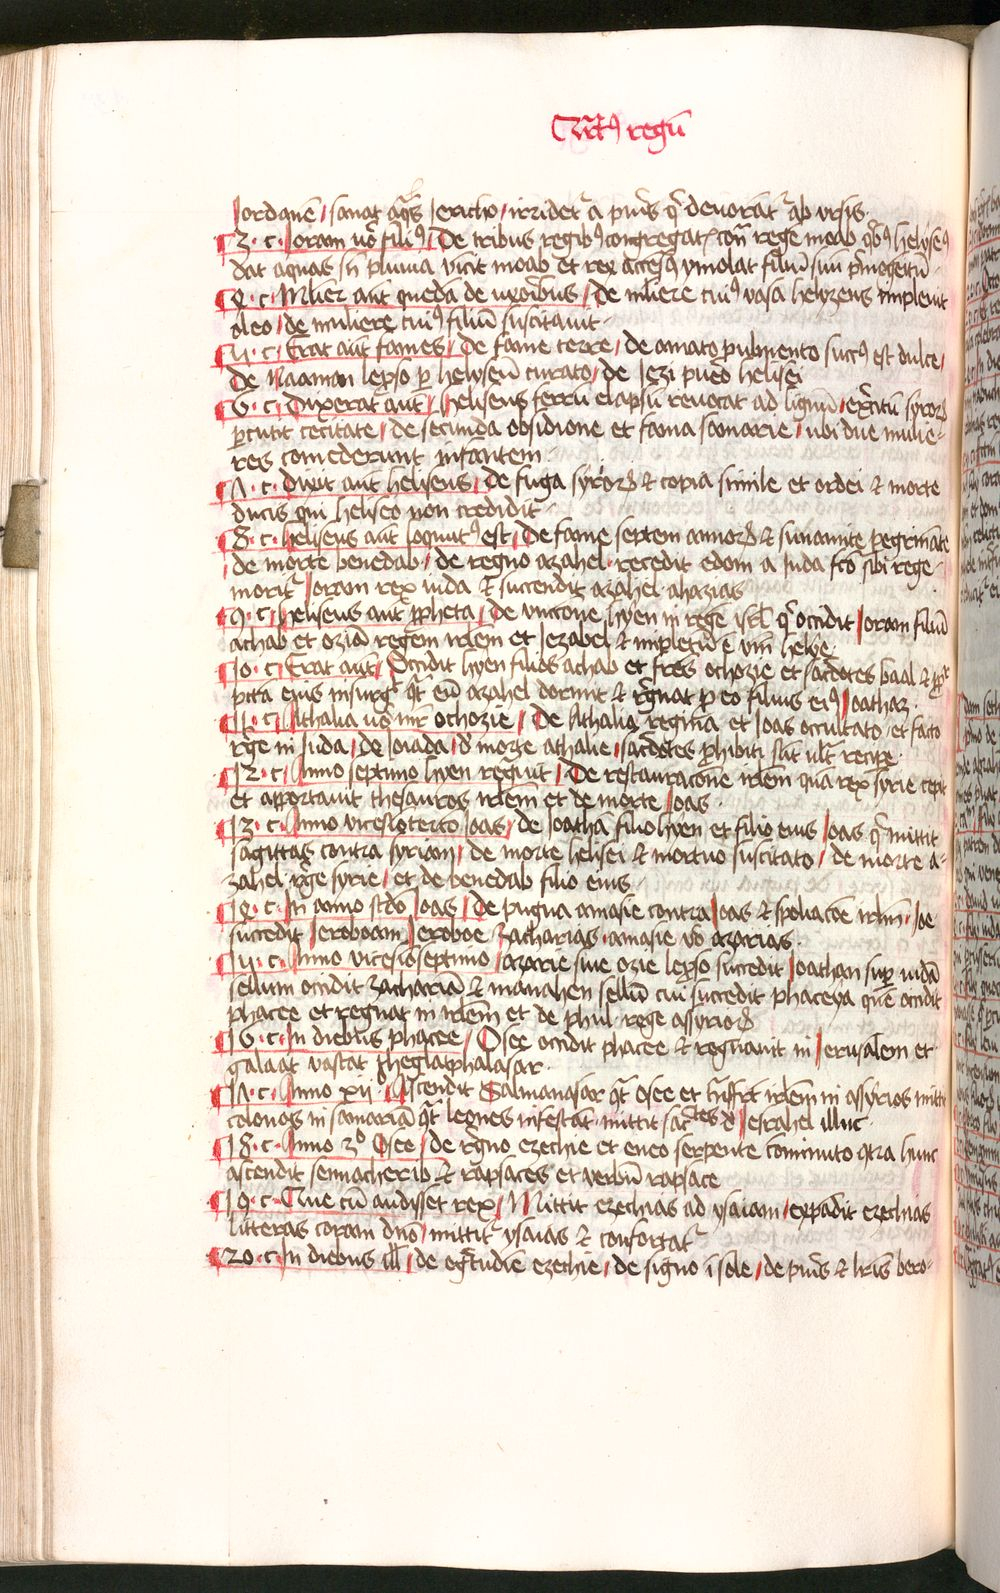 Q̄rt9 regū
Jordanē / sanat aq̄s Jericho / irridet᷑ a puis q̄ devorāt᷑ ab ursis
3 · c · Joram uō fili9 / De tribus regib9 congregat᷑ cont᷑ rege moab qb9 helyse9
dat aquas sn̄ pluvia vicit moab et rex
4 · c · Mulier aūt quedā de uxoribus / De muliere cui9 vasa helyzeus implevit
oleo / de muliere cui9 filiū suscitavit
5 · c · Erat aūt fames / De fame terre / de amaro pulmento succ9 est dulce /
De Naaman lepso p helyseū curato / de Jezi puō helisei
6 · c · Dixerāt aūt / Heliseus ferrū elapsū revocat ad lignū / exītū syroꝝ
pcutit cecitate / de secunda obsidione et fama samarie / ubi due mulie-
res comederunt infantem
7 · c · Dixit aūt heliseus / De fuga syroꝝ & copia simile et ordei & morte
ducis qui heliseo non credidit
8 · c · heliseus aūt loquut9 est / De fame septem annoꝝ & sunamite pegrināte
/ de morte benedab / de regno azahel · recedit edom a Juda fcō sibi rege ·
morit᷑ Joram rex iuda & succedit azahel ahazias
9 · c · Heliseus aūt ppheta / De unctone hyeu in regē isrl q̄ occidit Joram filiū
achab et oziā regem irlem et Jezabel & impletū ē vm̄ helye ·
10 · c · Erat aūt / Occidit hyeu filios achab et frēs ochozie et sacdotes baal &
pctā eius insurgt᷑ qt᷑ eū azahel dormit & rgnat p eo filius ei9 Joathaz ·
11 · c · Athalia uō mr̄ ochozie / De Athalia regina et Joas occultato / et facto
rge in Juda / de Joiada / d morte athalie / sacdotes phibiti sūt ult᷑ recipe ·
12 · c · Anno septimo hyeu regūt / De restauracone irlem qua rex syrie cepit
et apportavit thesauros irlem et de morte Joas ·
13 · c · Anno vicesiotercio Joas / de Joathā filio hyeu et filio eius Joas q̄ mittit
sagittas contra syriam / de morte helisei & mortuo suscitato / de morte a-
zahel rge syrie / et de benedab filio eius
14 · c · In anno scdo Joas / De pugna amasie contra Joas & spoliacōe irlm̄ · Joe
succedit Jeroboam Jeroboe Zacharias · amasie vō azarias ·
15 · c · Anno vicesioseptimo / azarie siue ozie lepso succedit Joathan sup iudā
sellum occidit Zachariā & manahen sellū cui succedit phaceya quē occidit
phacee et regnat in irlem et de phul rege assyrioꝝ
16 · c · In diebus phacee / Osee occidit phacee & regnavit in Jerusalem et
galaat vastat theglatphalasar ·
17 · c · Anno xii° · Ascendit Salmanasar qt᷑ osee et tnsfrt irlem in assyrios mittit
colonos in samariā qt᷑ leones infestāt · mittit sacdotes d Jesrahel illuc ·
18 · c · Anno 3° Osee / de rgno ezechie et eneo serpente cominuto qtra hunc
ascendit sennacherib & rapsaces et verbū rapsace
19 · c · Que cū audisset rex / Mittit ezechias ad ysaiam / expādit ezechias
litteras coram dnō / mittit᷑ ysaias & confortat᷑
20 · c · In diebus ill̄ / de egrtudīe ezechie / de signo ī sole / de puis & lrīs bero-